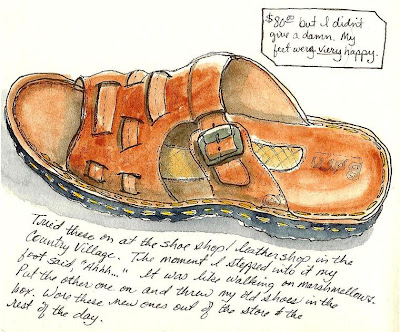 $80.00 but I didn't
give a damn. My
feet were very happy.
Tried these on at the shoe shop/leather shop in the
Country Village. The moment I stepped into it my
foot said, "Ahhh..." It was like walking on marshmellows.
Put the other one on and threw my old shoes in the
box. Wore these new ones out of the store & the
rest of the day.